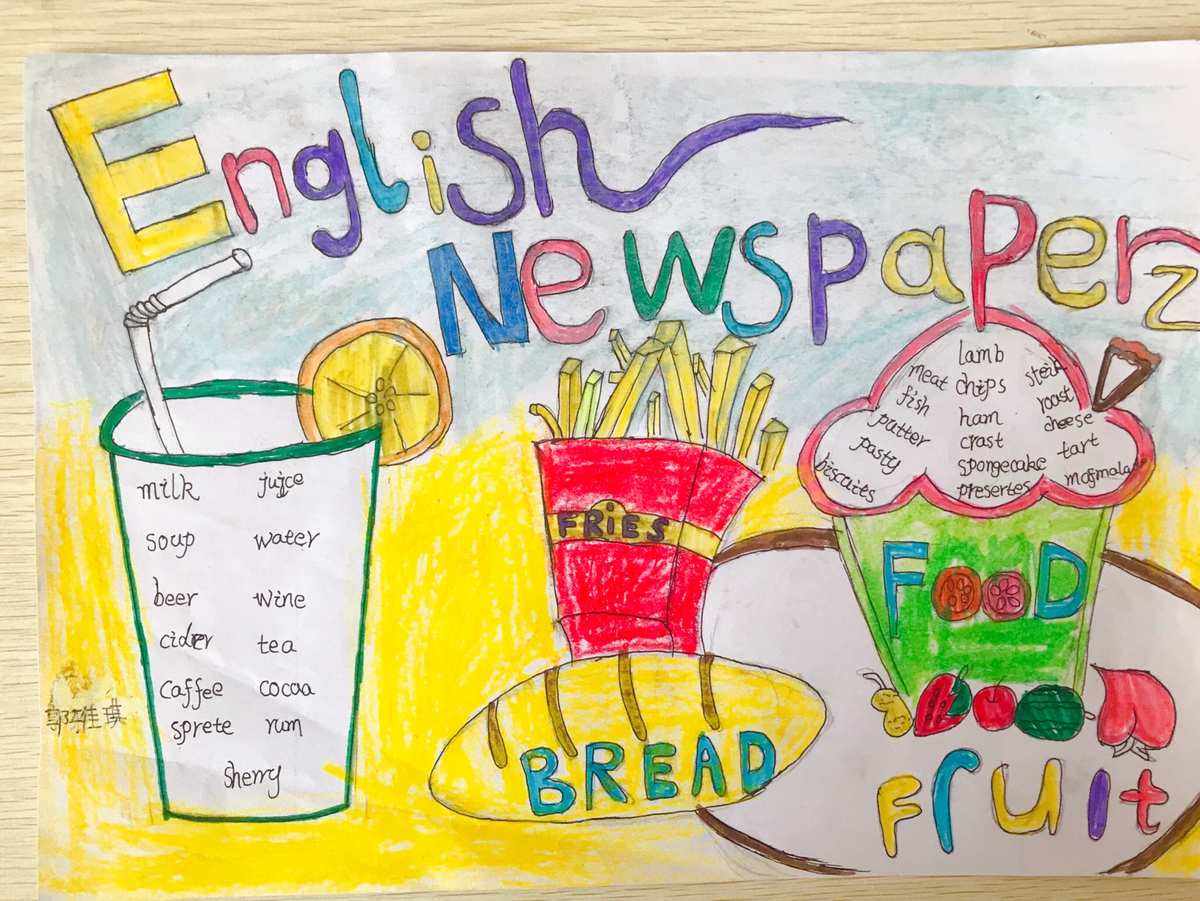 English
Newspaper
milk jujce
soup water
beer wine
cider tea
caffee cocoa
sprete rum
sherry
FRiES
BREAD
lamb
meat chips
fish ham roast
putter crast cheese
pasty spongecake tart
biscuits presertes
FOOD
Fruit